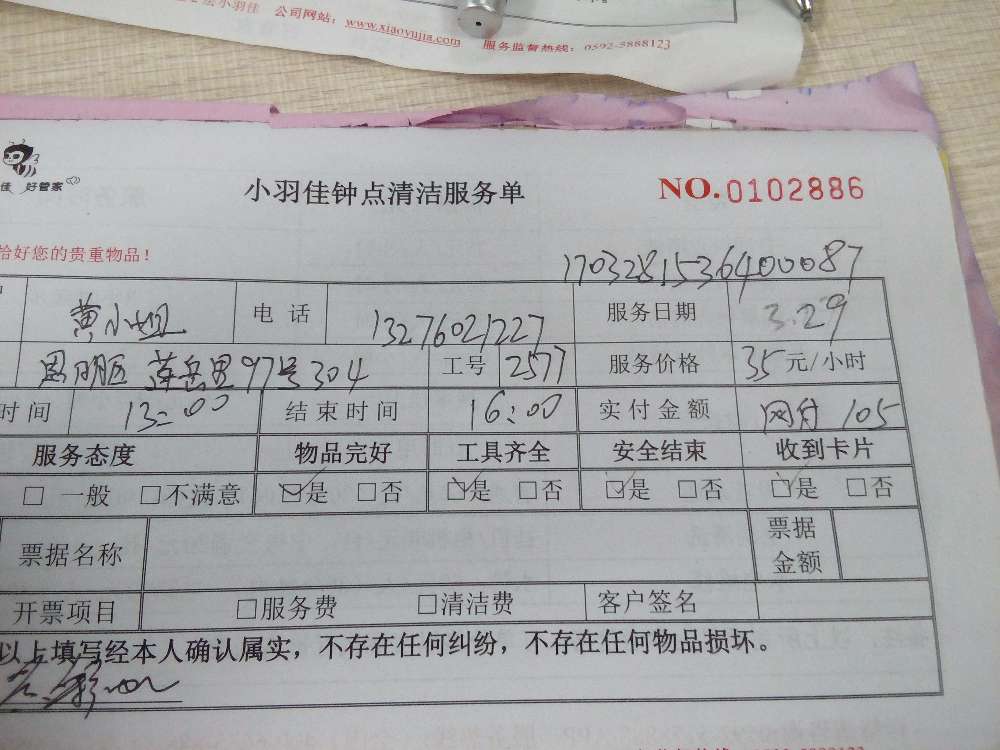 小羽佳 公司网站：www.xiaoyujia.com 服务监督热线：0592-5888123
佳 好管家
小羽佳钟点清洁服务单
NO.0102886
恰好您的贵重物品！
17032815364000087
黄小姐 电 话 13276021227 服务日期 3.29
思明区 莲岳里97号304 工号 2577 服务价格 35元/小时
时间 13:00 结束时间 16:00 实付金额 网付 105
服务态度 物品完好 工具齐全 安全结束 收到卡片
□ 一般 □不满意 □是 □否 □是 □否 □是 □否 □是 □否
票据名称 票据金额
开票项目 □服务费 □清洁费 客户签名
以上填写经本人确认属实，不存在任何纠纷，不存在任何物品损坏。